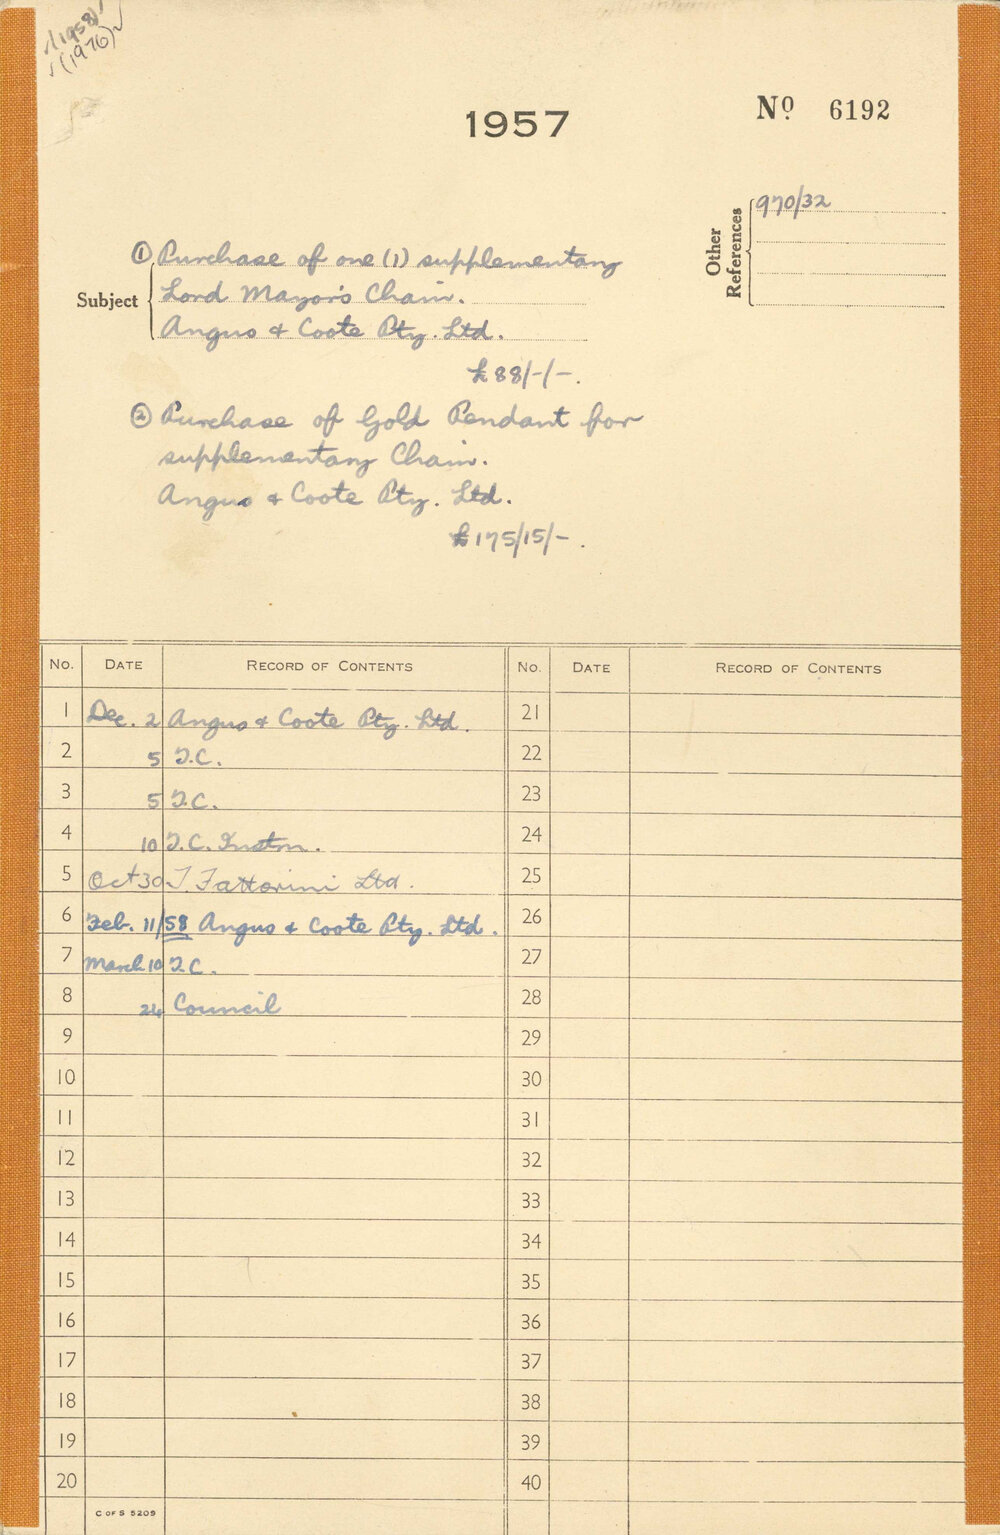 √(1958)√
√(1976)√
1957
Nº 6192
Other References
970/32
Subject
① Purchase of one (1) supplementary
Lord Mayor's Chain.
Angus & Coote Pty. Ltd.
£88/-/-.
② Purchase of Gold Pendant for
supplementary Chain.
Angus & Coote Pty. Ltd.
£175/15/-.
No. DATE RECORD OF CONTENTS No. DATE RECORD OF CONTENTS
1 Dec. 2 Angus & Coote Pty. Ltd. 21
2 5 T.C. 22
3 5 T.C. 23
4 10 T.C. 24
5 Oct 30 T. Fattorini Ltd. 25
6 Feb. 11/58 Angus & Coote Pty. Ltd. 26
7 March 10 T.C. 27
8 24 Council 28
9 29
10 30
11 31
12 32
13 33
14 34
15 35
16 36
17 37
18 38
19 39
20 40
C OF S 5209